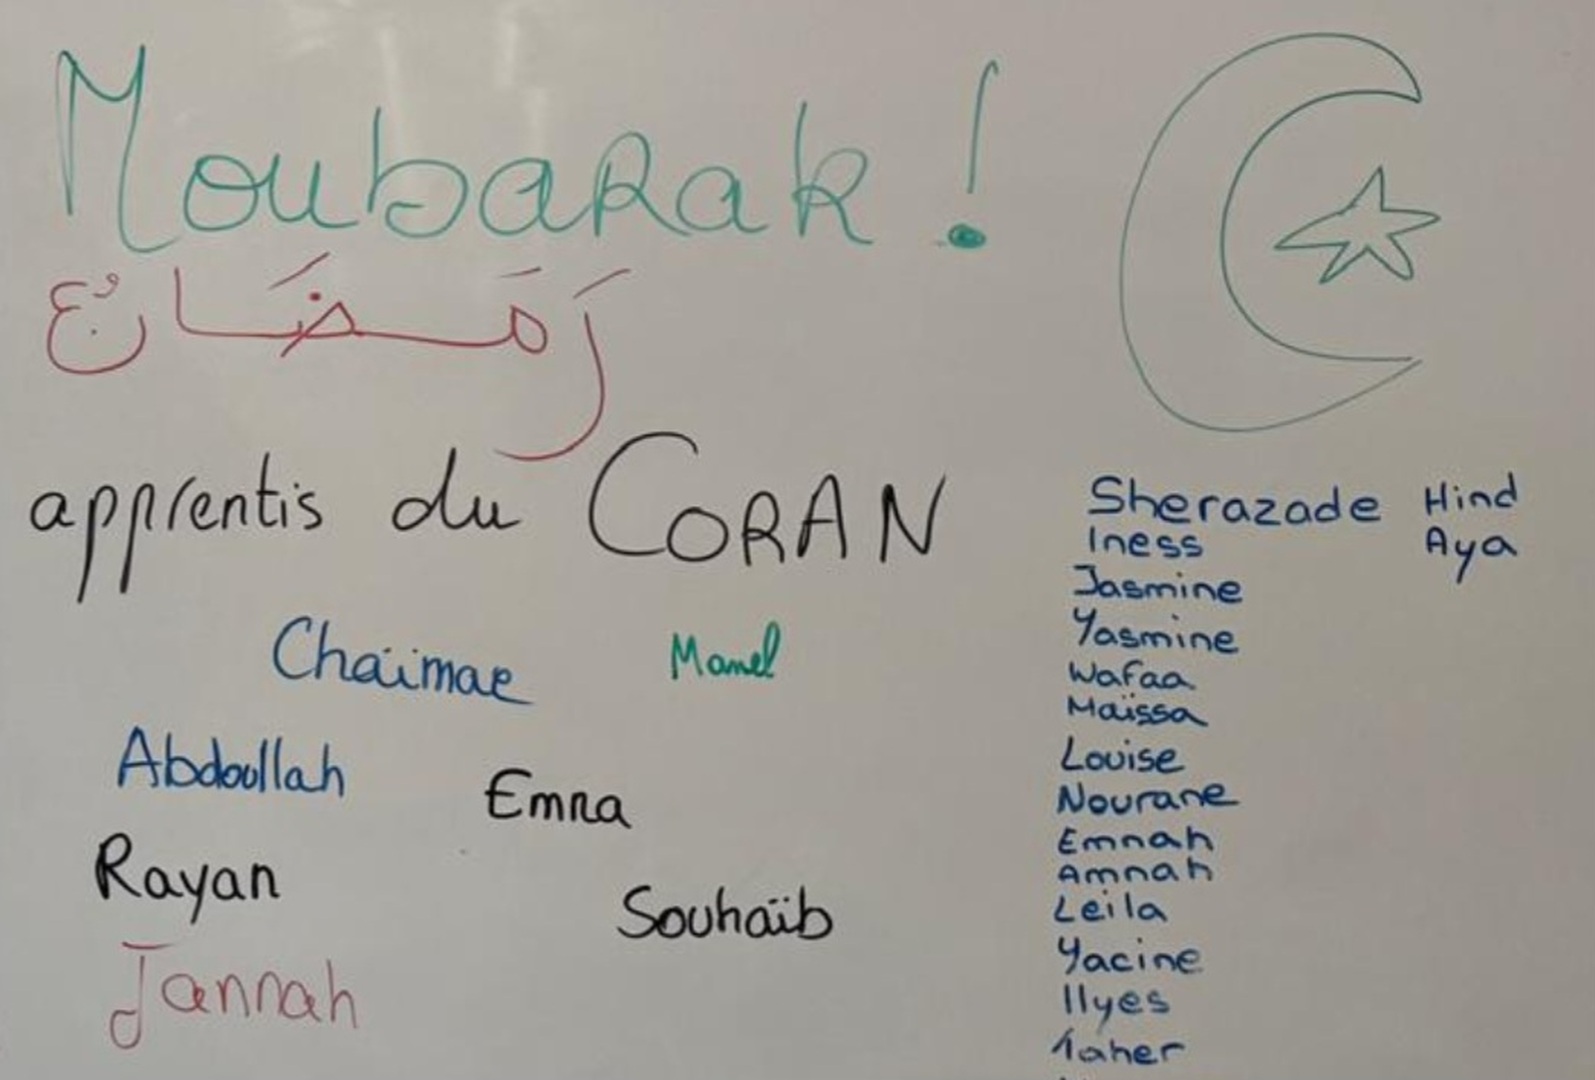 Moubarak !
رَمَضَان
apprentis du CORAN
Chaïmae Manel
Abdoullah Emna
Rayan Souhaïb
Jannah
Sherazade Hind
Iness Aya
Jasmine
Yasmine
Wafaa
Maïssa
Louise
Nourane
Emnah
Amnah
Leila
Yacine
Ilyes
Taher